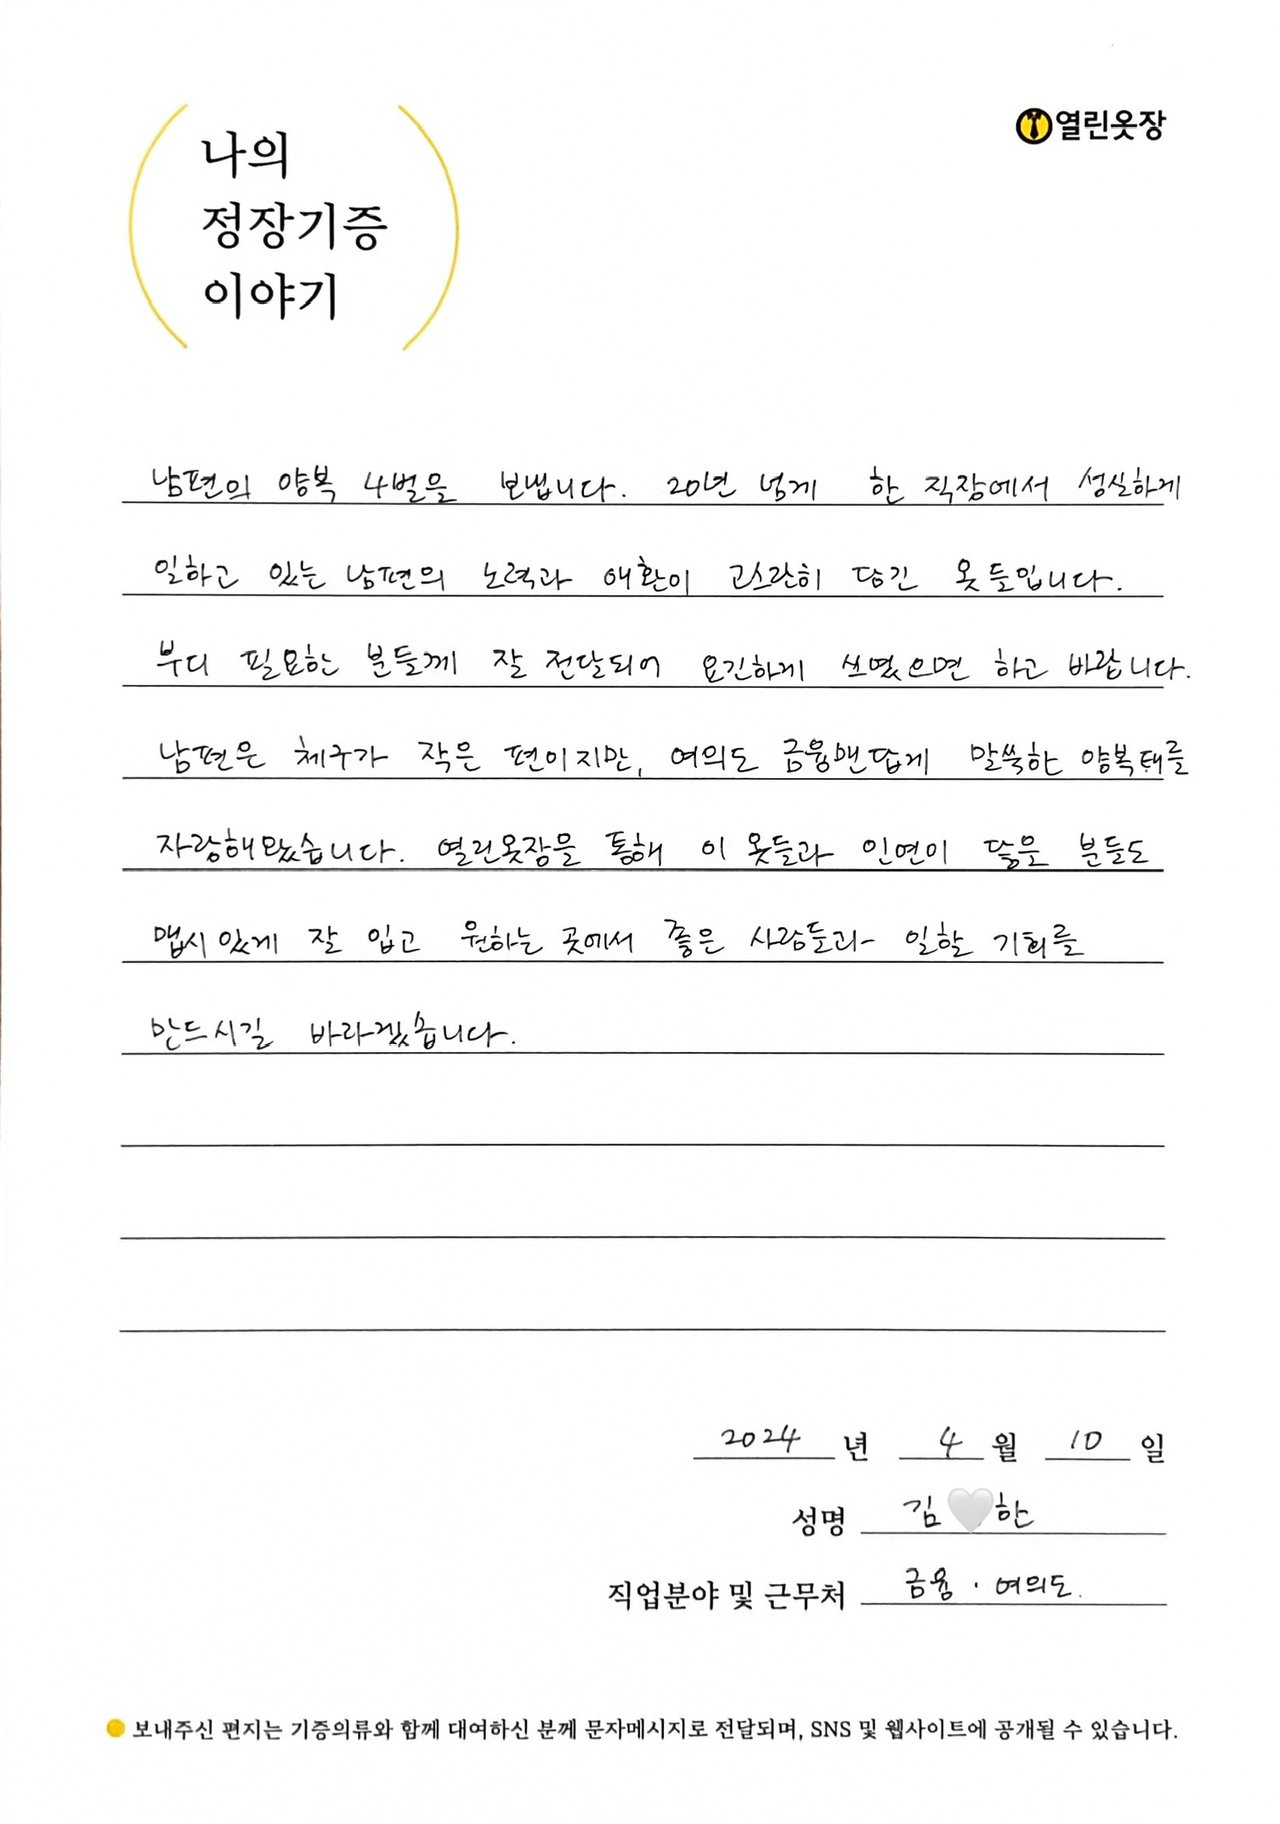 나의
정장기증
이야기
열린옷장
남편의 양복 4벌을 보냅니다. 20년 넘게 한 직장에서 성실하게
일하고 있는 남편의 노력과 애환이 고스란히 담긴 옷들입니다.
부디 필요한 분들께 잘 전달되어 요긴하게 쓰였으면 하고 바랍니다.
남편은 체구가 작은 편이지만, 여의도 금융맨답게 말쑥한 양복태를
자랑해왔습니다. 열린옷장을 통해 이 옷들과 인연이 닿은 분들도
맵시있게 잘 입고 원하는 곳에서 좋은 사람들과 일할 기회를
만드시길 바라겠습니다.
2024 년 4 월 10 일
성명 김🤍한
직업분야 및 근무처 금융 · 여의도.
보내주신 편지는 기증의류와 함께 대여하신 분께 문자메시지로 전달되며, SNS 및 웹사이트에 공개될 수 있습니다.